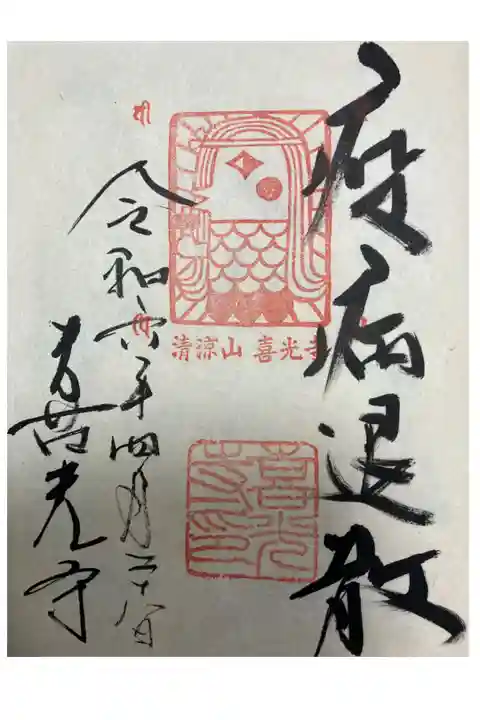 疫病退散
令和六年四月二十八日
喜光寺
清涼山 喜光寺
喜光寺印